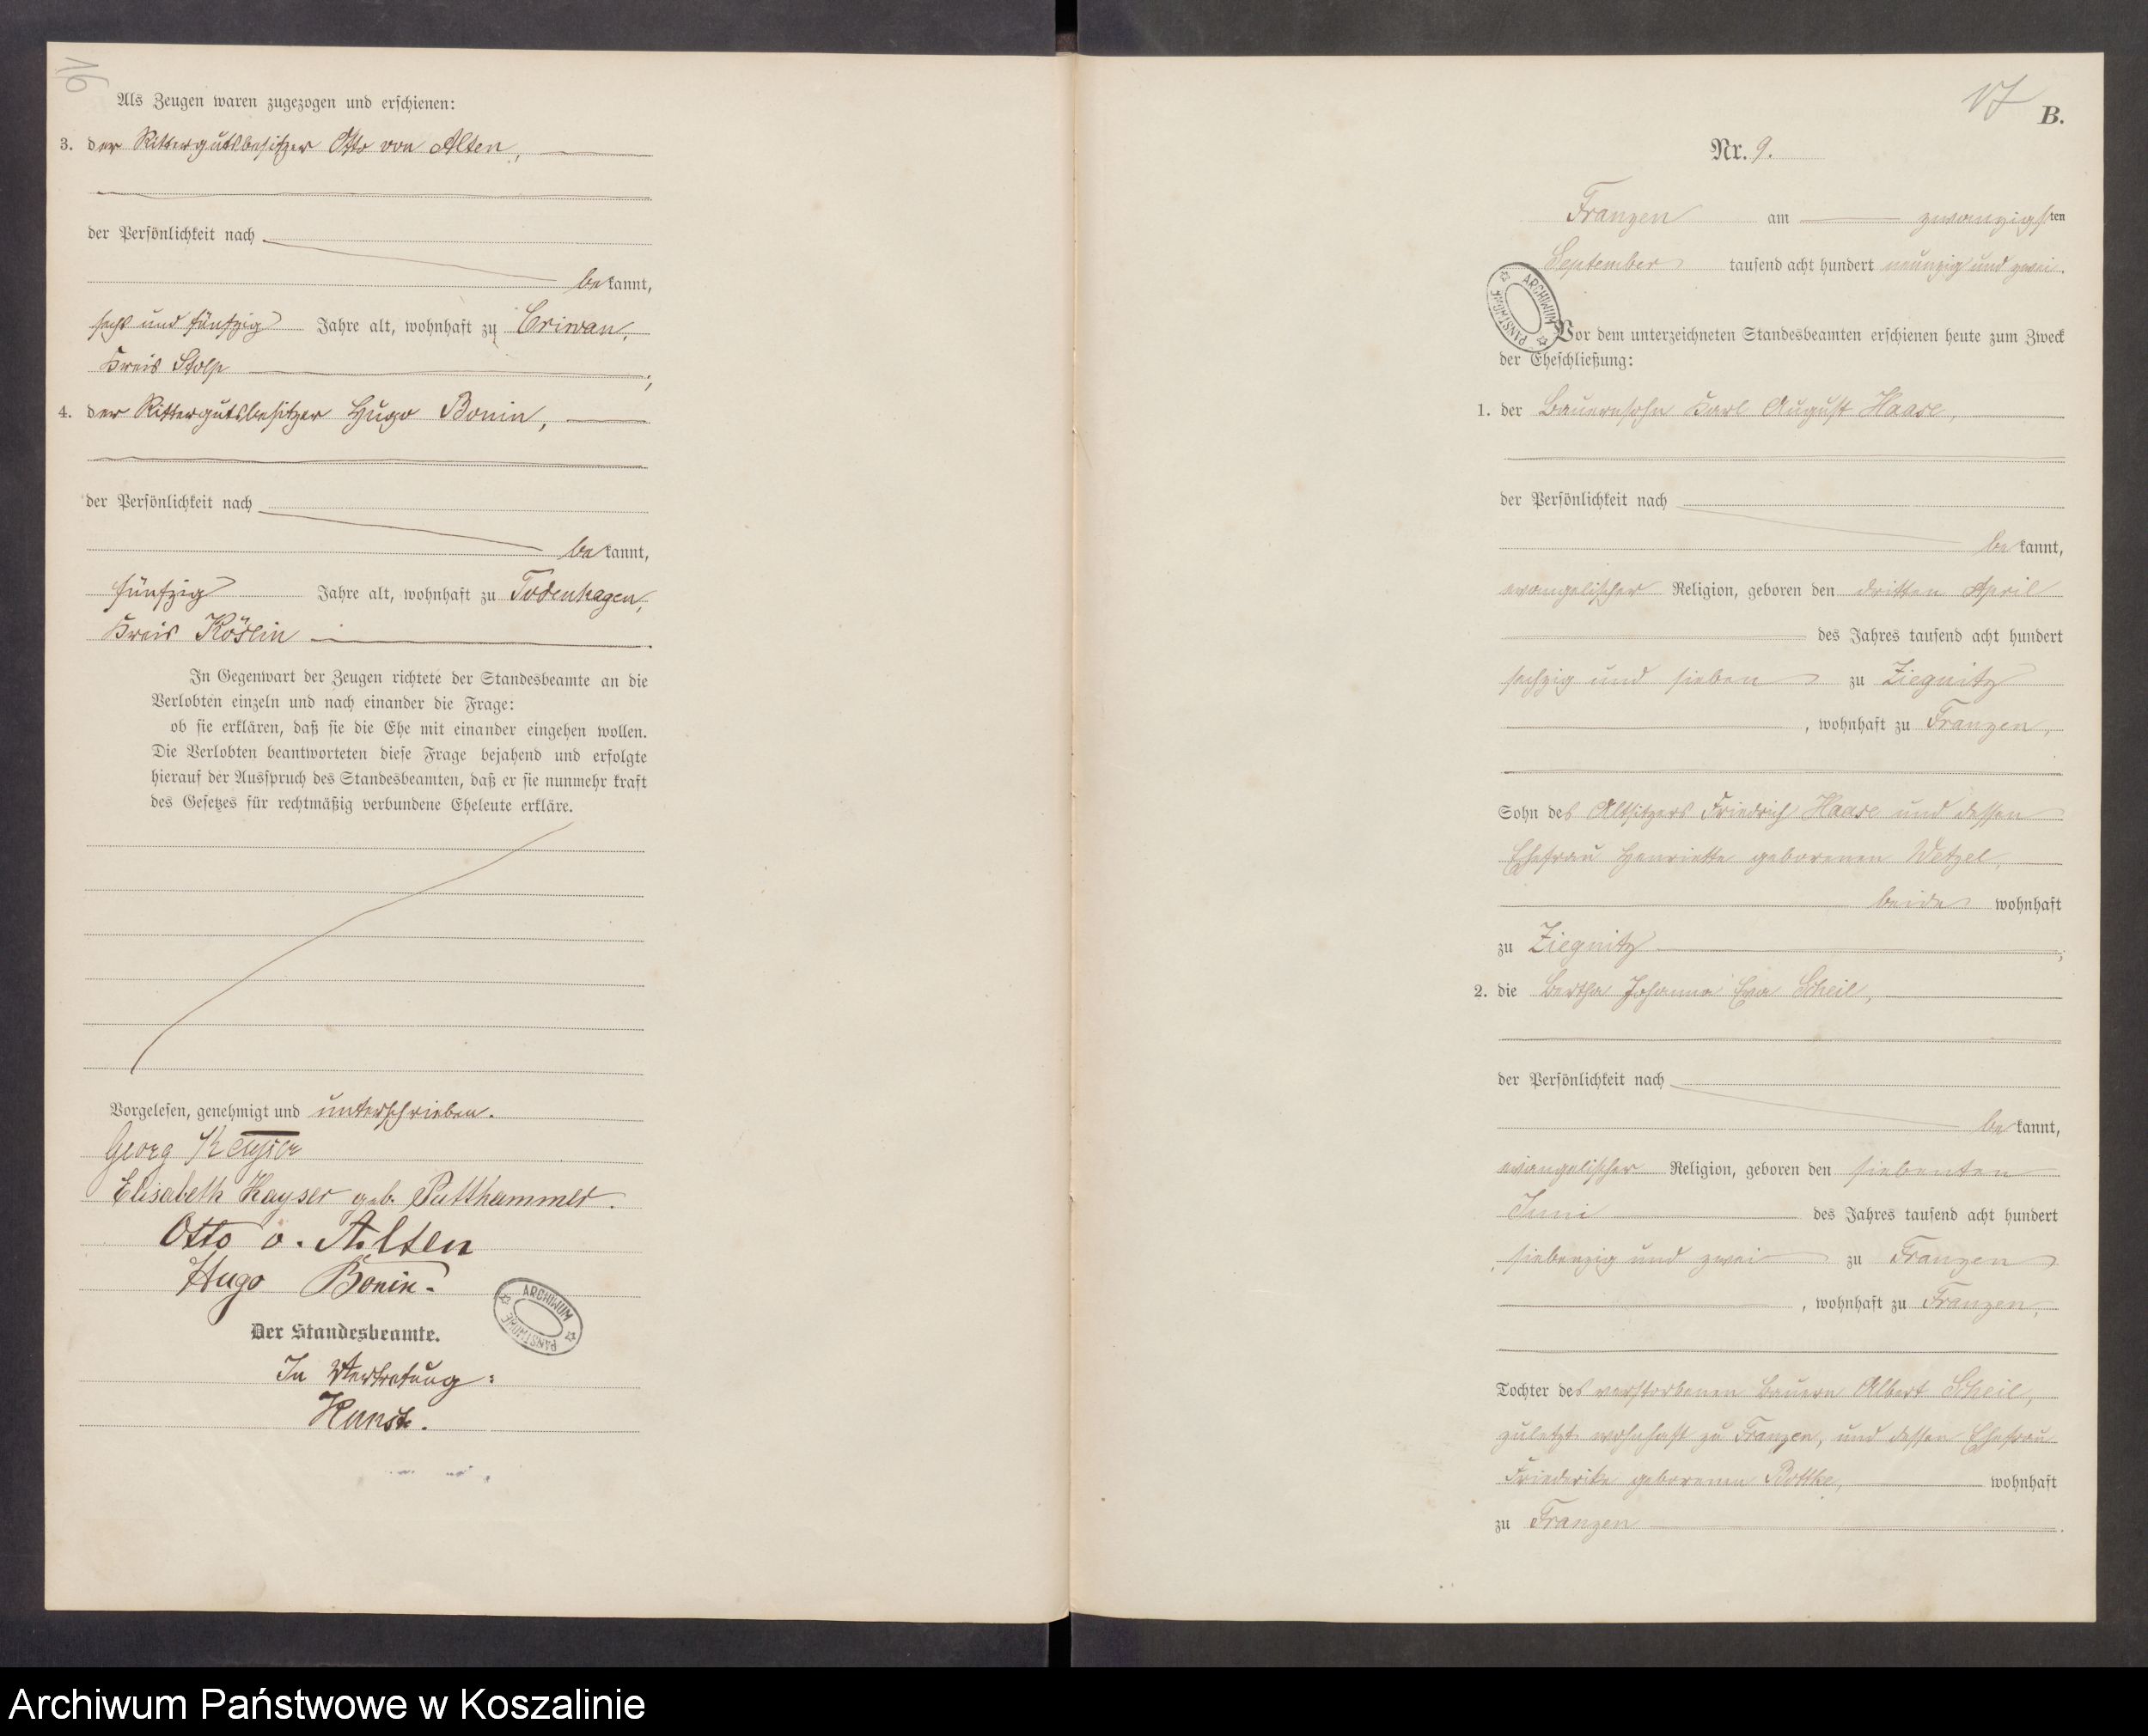 16
Als Zeugen waren zugezogen und erschienen:
3. der Rittergutsbesitzer Otto von Alten,
der Persönlichkeit nach
bekannt,
sechs und fünfzig Jahre alt, wohnhaft zu Criwan,
Kreis Stolp;
4. der Rittergutsbesitzer Hugo Bonin,
der Persönlichkeit nach
bekannt,
fünfzig Jahre alt, wohnhaft zu Todenhagen,
Kreis Köslin.
In Gegenwart der Zeugen richtete der Standesbeamte an die
Verlobten einzeln und nach einander die Frage:
ob sie erklären, daß sie die Ehe mit einander eingehen wollen.
Die Verlobten beantworteten diese Frage bejahend und erfolgte
hierauf der Ausspruch des Standesbeamten, daß er sie nunmehr kraft
des Gesetzes für rechtmäßig verbundene Eheleute erkläre.
Vorgelesen, genehmigt und unterschrieben.
Georg Kayser
Elisabeth Kayser geb. Putthammer.
Otto v. Alten
Hugo Bonin.
ARCHIWUM PAŃSTWOWE
Der Standesbeamte.
In Vertretung:
Kunst.
17
B.
Nr. 9.
Franzen am zwanzigsten
September tausend acht hundert neunzig und zwei.
ARCHIWUM PAŃSTWOWE
Vor dem unterzeichneten Standesbeamten erschienen heute zum Zweck
der Eheschließung:
1. der Bauernsohn Karl August Haase,
der Persönlichkeit nach
bekannt,
evangelischer Religion, geboren den dritten April
des Jahres tausend acht hundert
sechzig und sieben zu Ziegnitz
, wohnhaft zu Franzen,
Sohn des Altsitzers Friedrich Haase und dessen
Ehefrau Henriette geborenen Wetzel,
beide wohnhaft
zu Ziegnitz;
2. die Bertha Johanna Eva Scheil,
der Persönlichkeit nach
bekannt,
evangelischer Religion, geboren den siebenten
Juni des Jahres tausend acht hundert
siebenzig und zwei zu Franzen
, wohnhaft zu Franzen,
Tochter des verstorbenen Bauern Albert Scheil,
zuletzt wohnhaft zu Franzen, und dessen Ehefrau
Friederike geborenen Bottke, wohnhaft
zu Franzen.
Archiwum Państwowe w Koszalinie